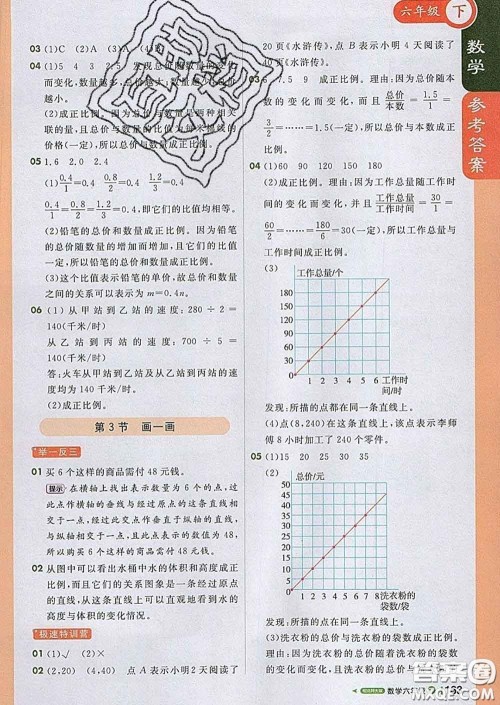 六年级 下
数学
参考答案
03 (1)C (2)A (3)A (4)B
04 (1)5 125 发现总价随数量的变化
而变化,数量越多,总价越大;数量越少,总价
越小。
(2)成正比例。总价与数量是两种相关
联的量,且总价与数量的比值为每米
价格(一定),所以总价与数量成正比例。
05 1.6 2.0 2.4
(1) 0.4/1=0.4, 0.8/2=0.4,即它们的比值均相等。
(2)铅笔的总价和数量成正比例。因为铅笔
的总价随数量的增加而增加,且总价与数量
的比值一定,所以它们成正比例。
(3)这个比值表示铅笔的单价,故总价和数量
之间的关系可以表示为 m=0.4n。
06 (1)从甲站到乙站的速度:280÷2=
140(千米/时)
从乙站到丙站的速度:700÷5=
140(千米/时)
答:火车从甲站到乙站及从乙站到丙站的速
度均为140千米/时。
(2)成正比例。
第3节 画一画
举一反三
01 买6个这样的商品需付48元钱。
提示 在横轴上找出表示数量为6个的点,过
此点作横轴的垂线与经过原点的这条直线相
交于一点,经过此交点作垂直于纵轴的直线,
与纵轴相交于一点,且此点表示的数值为48,
所以购买6个这样的商品需付48元钱。
02 从图中可以看出水桶中水的体积和高度成正
比例,而且它们的关系图象是一条经过原点
的直线,从这条直线上可以直观地看到水的
高度与体积的变化情况。
极速特训营
01 (1)√ (2)×
02 (2,20) (4,40) 点A表示小明2天阅读了
20页《水浒传》,点B表示小明4天阅读了
40页《水浒传》。
03 6 7.5 9 成正比例。理由:因为总价随本
数的变化而变化,且总价/本数=1.5/1=
3/2=……=1.5(一定),所以总价与本数成正
比例。
04 (1)60 90 120 150 180
(2)成正比例。理由:因为工作总量随工作时
间的变化而变化,并且工作总量/工作时间=30/1=
60/2=……=30(一定),所以工作总量与
工作时间成正比例。
(3)
工作总量/个
180
150
120
90
60
30
0 1 2 3 4 5 6 工作时
间/时
发现:所描的点都在同一条直线上。
(4)点(8,240)在这条直线上,该点表示李师
傅8小时加工了240个零件。
05 (1)
(2)
总价/元
50
45
40
35
30
25
20
15
10
5
0 1 2 3 4 5 6 7 8 洗衣粉的
袋数/袋
发现:所描的点在同一条直线上。
(3)洗衣粉的总价与洗衣粉的袋数成正比例。
理由:因为洗衣粉的总价随洗衣粉的袋数的
数学六
163